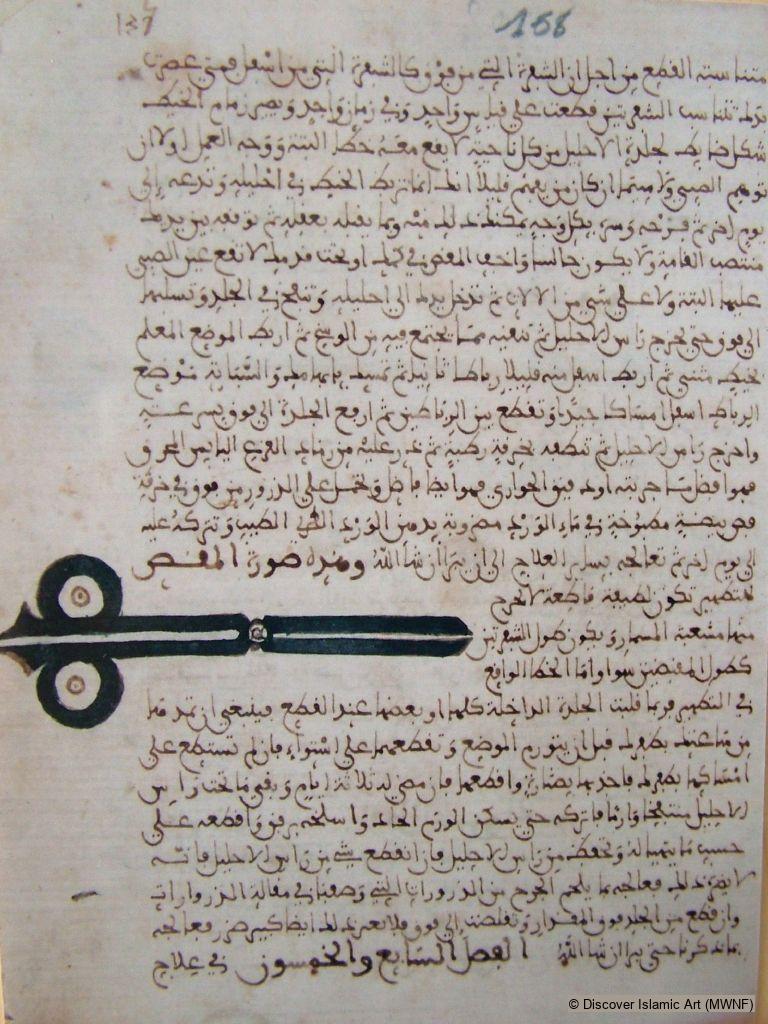 137
158
متناسبة القطع من اجل ان الشفرة التي من فوق كالشفرة التي من اسفل فمتى عصرت
يدك تناسب الشفرتين قطعت على قياس واحد وفي زمان واحد ويصير زمام الخيط
شكل ضابط لجلدة الاحليل من كل ناحية لا يقع معه خطا البتة ووجه العمل اولا ان
توهم الصبي ولا سيما ان كان ممن يفهم قليلا انك انما تربط الخيط في احليله وتدعه الى
يوم اخر ثم فرحه وسره بكل وجه يمكنك ذلك منه وما يقبله بعقله ثم توقفه بين يديك
منتصب القامة ولا يكون جالسا واخف المقص في كمك او تحت قدمك لا تقع عين الصبي
عليها البتة ولا على شي من الالات ثم تدخل يدك الى احليله وتنفخ في الجلد وتسلها
الى فوق حتى يخرج راس الاحليل ثم تنقيه مما يجتمع فيه من الوسخ ثم اربط الموضع المعلم
بخيط مثنى ثم اربط اسفل منه قليلا رباطا ثانيا ثم تمسك بابهامك والسبابة موضع
الرباط اسفل امساكا جيدا وتقطع بين الرباطين ثم ارفع الجلدة الى فوق بسرعة
واخرج راس الاحليل ثم تنطفه بخرقة رطبة ثم تذر عليه من رماد القرع اليابس المحرق
فهو افضل ما جربته او دقيق الحواري فهو ايضا فاضل وتحمل على الذرور من فوق في خرقة
فص بيضة مطبوخة في ماء الورد مضروبة بدهن الورد الطري الطيب وتتركه عليه
الى يوم اخر ثم تعالجه بساير العلاج الى ان يبرا ان شا الله وهذه صورة المقص
للتطهير تكون لطيفة قاطعة لا يخرج
منها مشعبة المسمار ويكون طول الشفرتين
كطول المقبضين سوا واما الخطا الواقع
في التطهير فربما فلتت الجلدة الداخلة كلها او بعضها عند القطع فينبغي ان تمدها
من ساعتك بظفرك قبل ان يتورم الموضع وتقطعها على استواء فان لم تستطع على
امساكها بظفرك فاجذبها بصنارة واقطعها فان مضى له ثلاثة ايام وبقي ما تحت راس
الاحليل منتفخا وارما فاتركه حتى يسكن الورم الحار واسلخه برفق واقطعه على
حسب ما يتهيا لك وتحفظ من راس الاحليل فان انقطع شي من راس الاحليل فانه
لا يضر ذلك فعالجه بما يلحم الجرح من الذرورات التي وصفنا في مقالة الذرورات
وان قطع من الجلد فوق المقدار وتقلصت الى فوق فلا يضر ذلك ايضا كبير ضرر فعالجه
بما ذكرنا حتى يبرا ان شا الله الفصل السابع والخمسون في علاج
© Discover Islamic Art (MWNF)